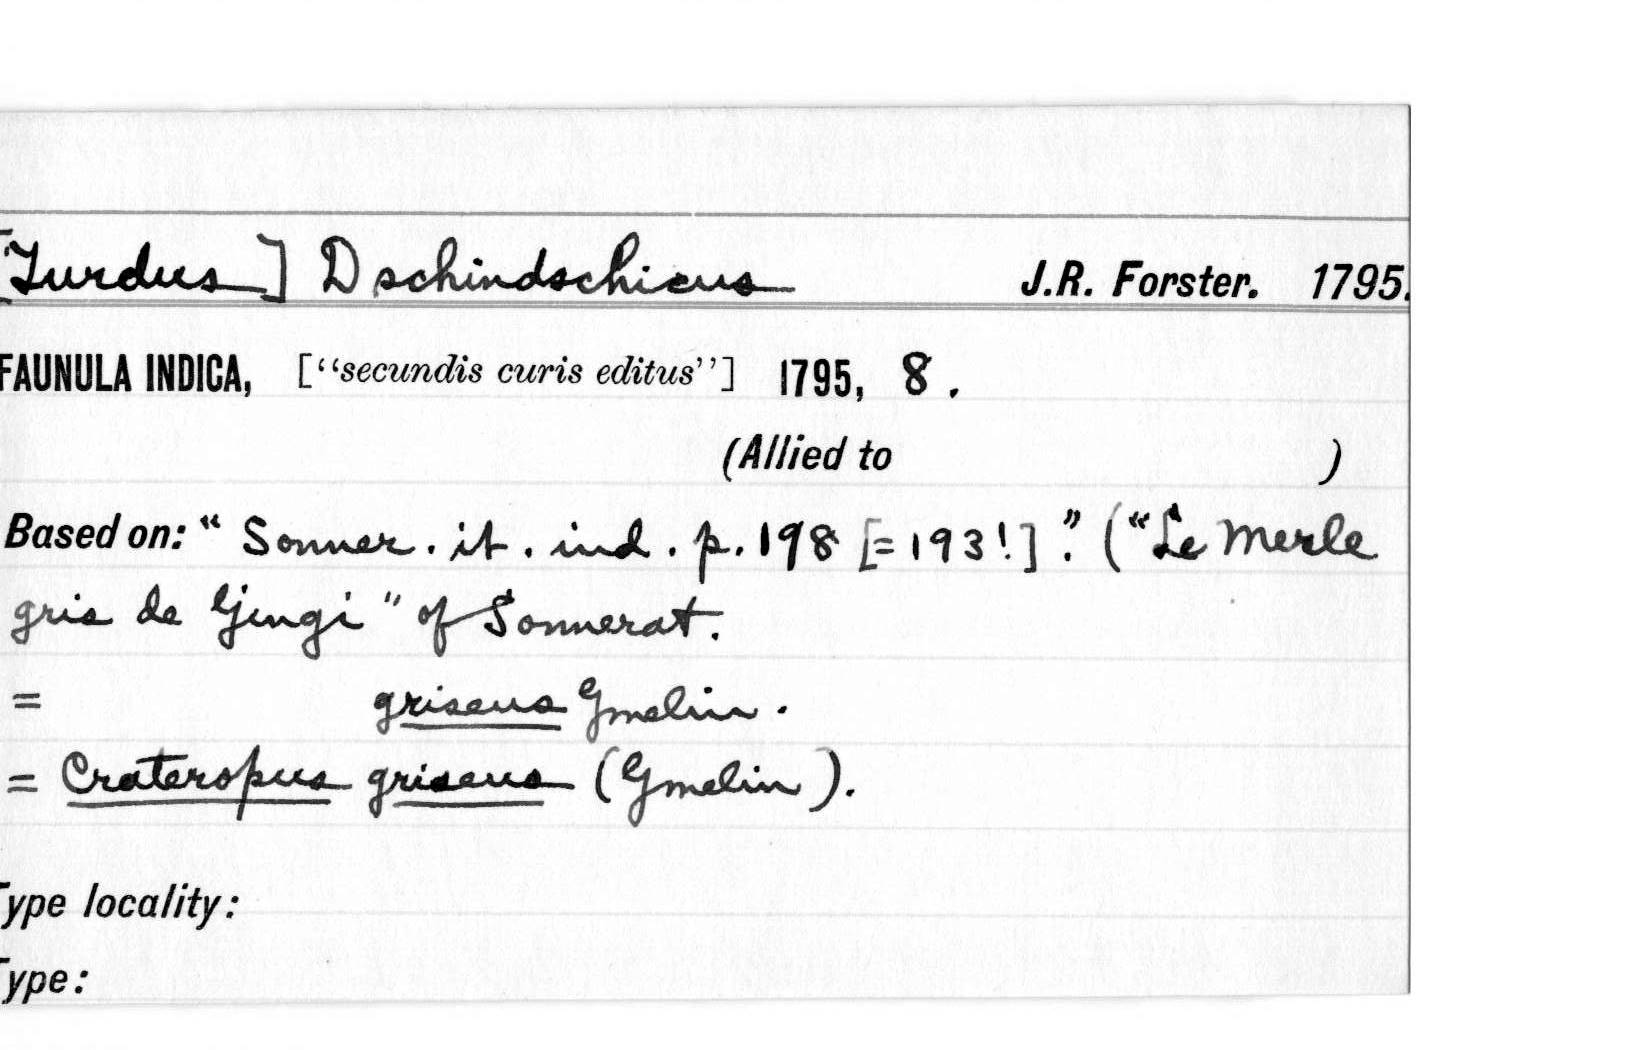 [Turdus] Dschindschicus J.R. Forster. 1795.
FAUNULA INDICA, [“secundis curis editus”] 1795, 8.
(Allied to )
Based on: “Sonner. it. ind. p. 198 [=193!].” (“Le Merle
gris de Gingi” of Sonnerat.
= griseus Gmelin.
= Crateropus griseus (Gmelin).
Type locality:
Type: